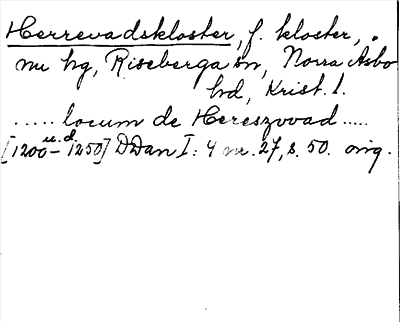 Herrevadskloster, f. kloster,
nu hg, Riseberga sn, Norra Åsbo
hd, Krist. l.
..... locum de Hereszwad .....
[1200 u.d. – 1250] DDan I: 4 nr. 27, s. 50. orig.